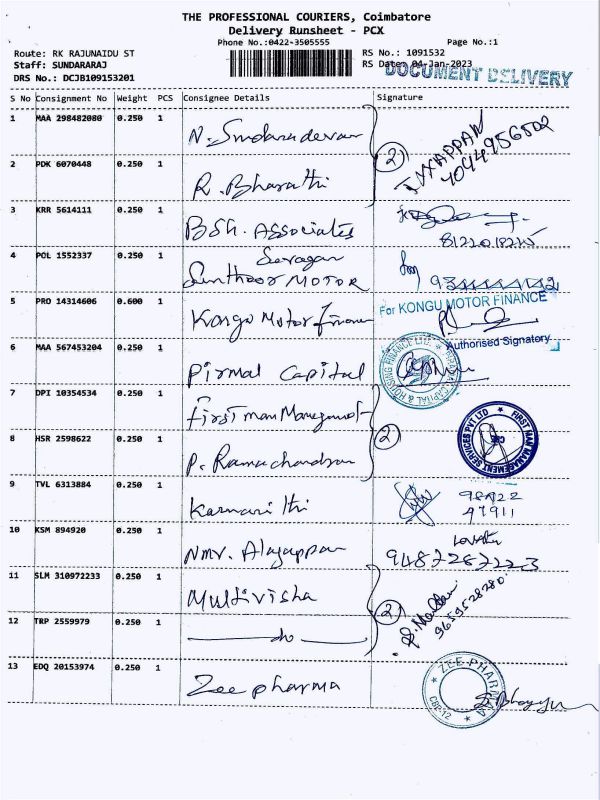 THE PROFESSIONAL COURIERS, Coimbatore
Delivery Runsheet - PCX
Phone No.:0422-3505555
Page No.:1
Route: RK RAJUNAIDU ST
RS No.: 1091532
Staff: SUNDARARAJ
RS Date: 04-Jan-2023
DRS No.: DCJB109153201
DOCUMENT DELIVERY
S No Consignment No Weight PCS Consignee Details Signature
1 MAA 298482080 0.250 1
2
IYYAPPAN
2 PDK 6070448 0.250 1 R. Bharathi
3 KRR 5614111 0.250 1 BSh. Associates
4 POL 1552337 0.250 1
MOTOR
For KONGU MOTOR FINANCE
5 PRO 14314606 0.600 1 Kongu Motor Finance
Authorised Signatory
6 MAA 567453204 0.250 1 Pirmal Capital
PIRAMAL CAPITAL & HOUSING FINANCE LTD.
7 DPI 10354534 0.250 1 First man Management
2
FIRST MAN MANAGEMENT SERVICES PVT LTD
8 HSR 2598622 0.250 1 P. Ramachandran
9 TVL 6313884 0.250 1
10 KSM 894920 0.250 1 NMV. Alagappan
11 SLM 310972233 0.250 1 Multivisha
2
9659528280
12 TRP 2559979 0.250 1 do
13 EDQ 20153974 0.250 1 Zee pharma
ZEE PHARMA
CBE-12